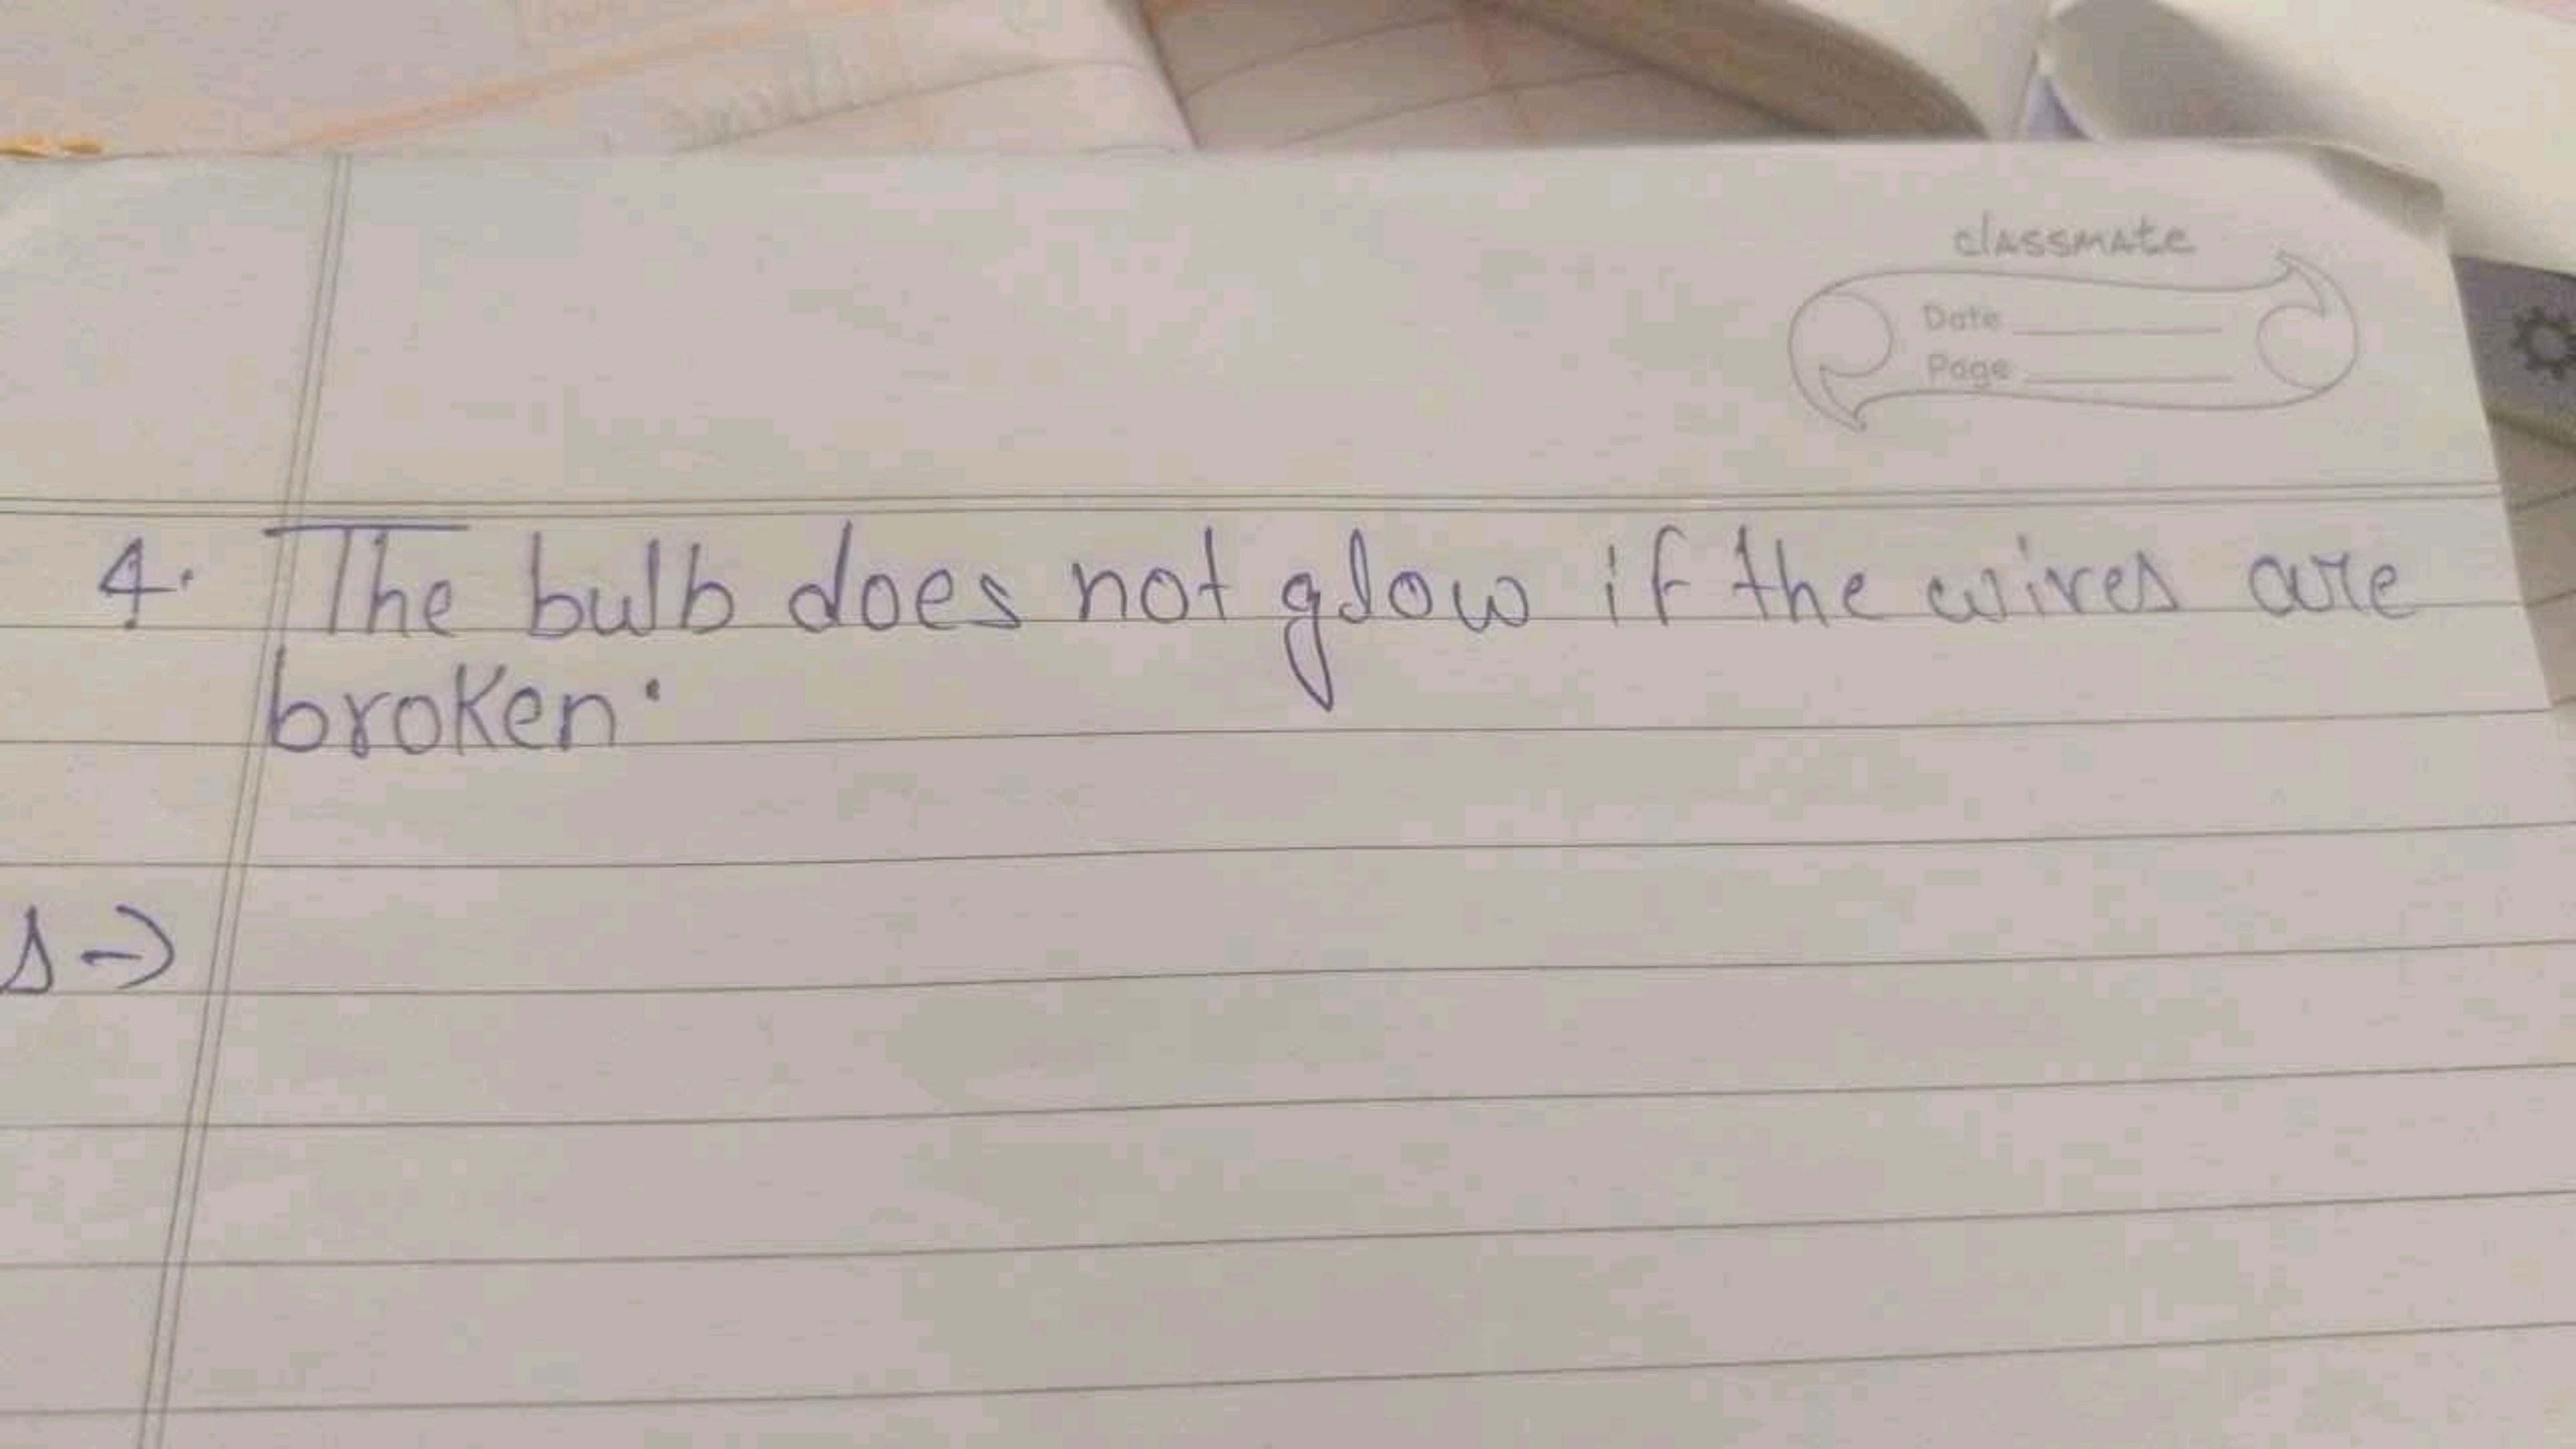 classmate
Date
Page
4. The bulb does not glow if the wires are
broken.
s →